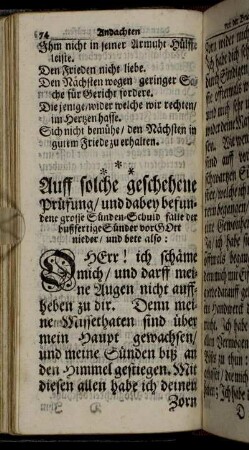 74 Andachten
Ihm nicht in seiner Armuht Hülffe
leiste.
Den Frieden nicht liebe.
Den Nächsten wegen geringer Sa-
che für Gericht fordere.
Die jenige/wider welche wir rechten/
im Hertzen hasse.
Sich nicht bemühe/ den Nächsten in
gutem Friede zu erhalten.
* * *
Auff solche geschehene
Prüfung/ und dabey befun-
dene grosse Sünden-Schuld falle der
bußfertige Sünder vor GOtt
nieder/ und bete also:
O HErr! ich schäme
mich/ und darff mei-
ne Augen nicht auff-
heben zu dir. Denn mei-
ne Missethaten sind über
mein Haupt gewachsen/
und meine Sünden biß an
den Himmel gestiegen. Mit
diesen allen habe ich deinen
Zorn